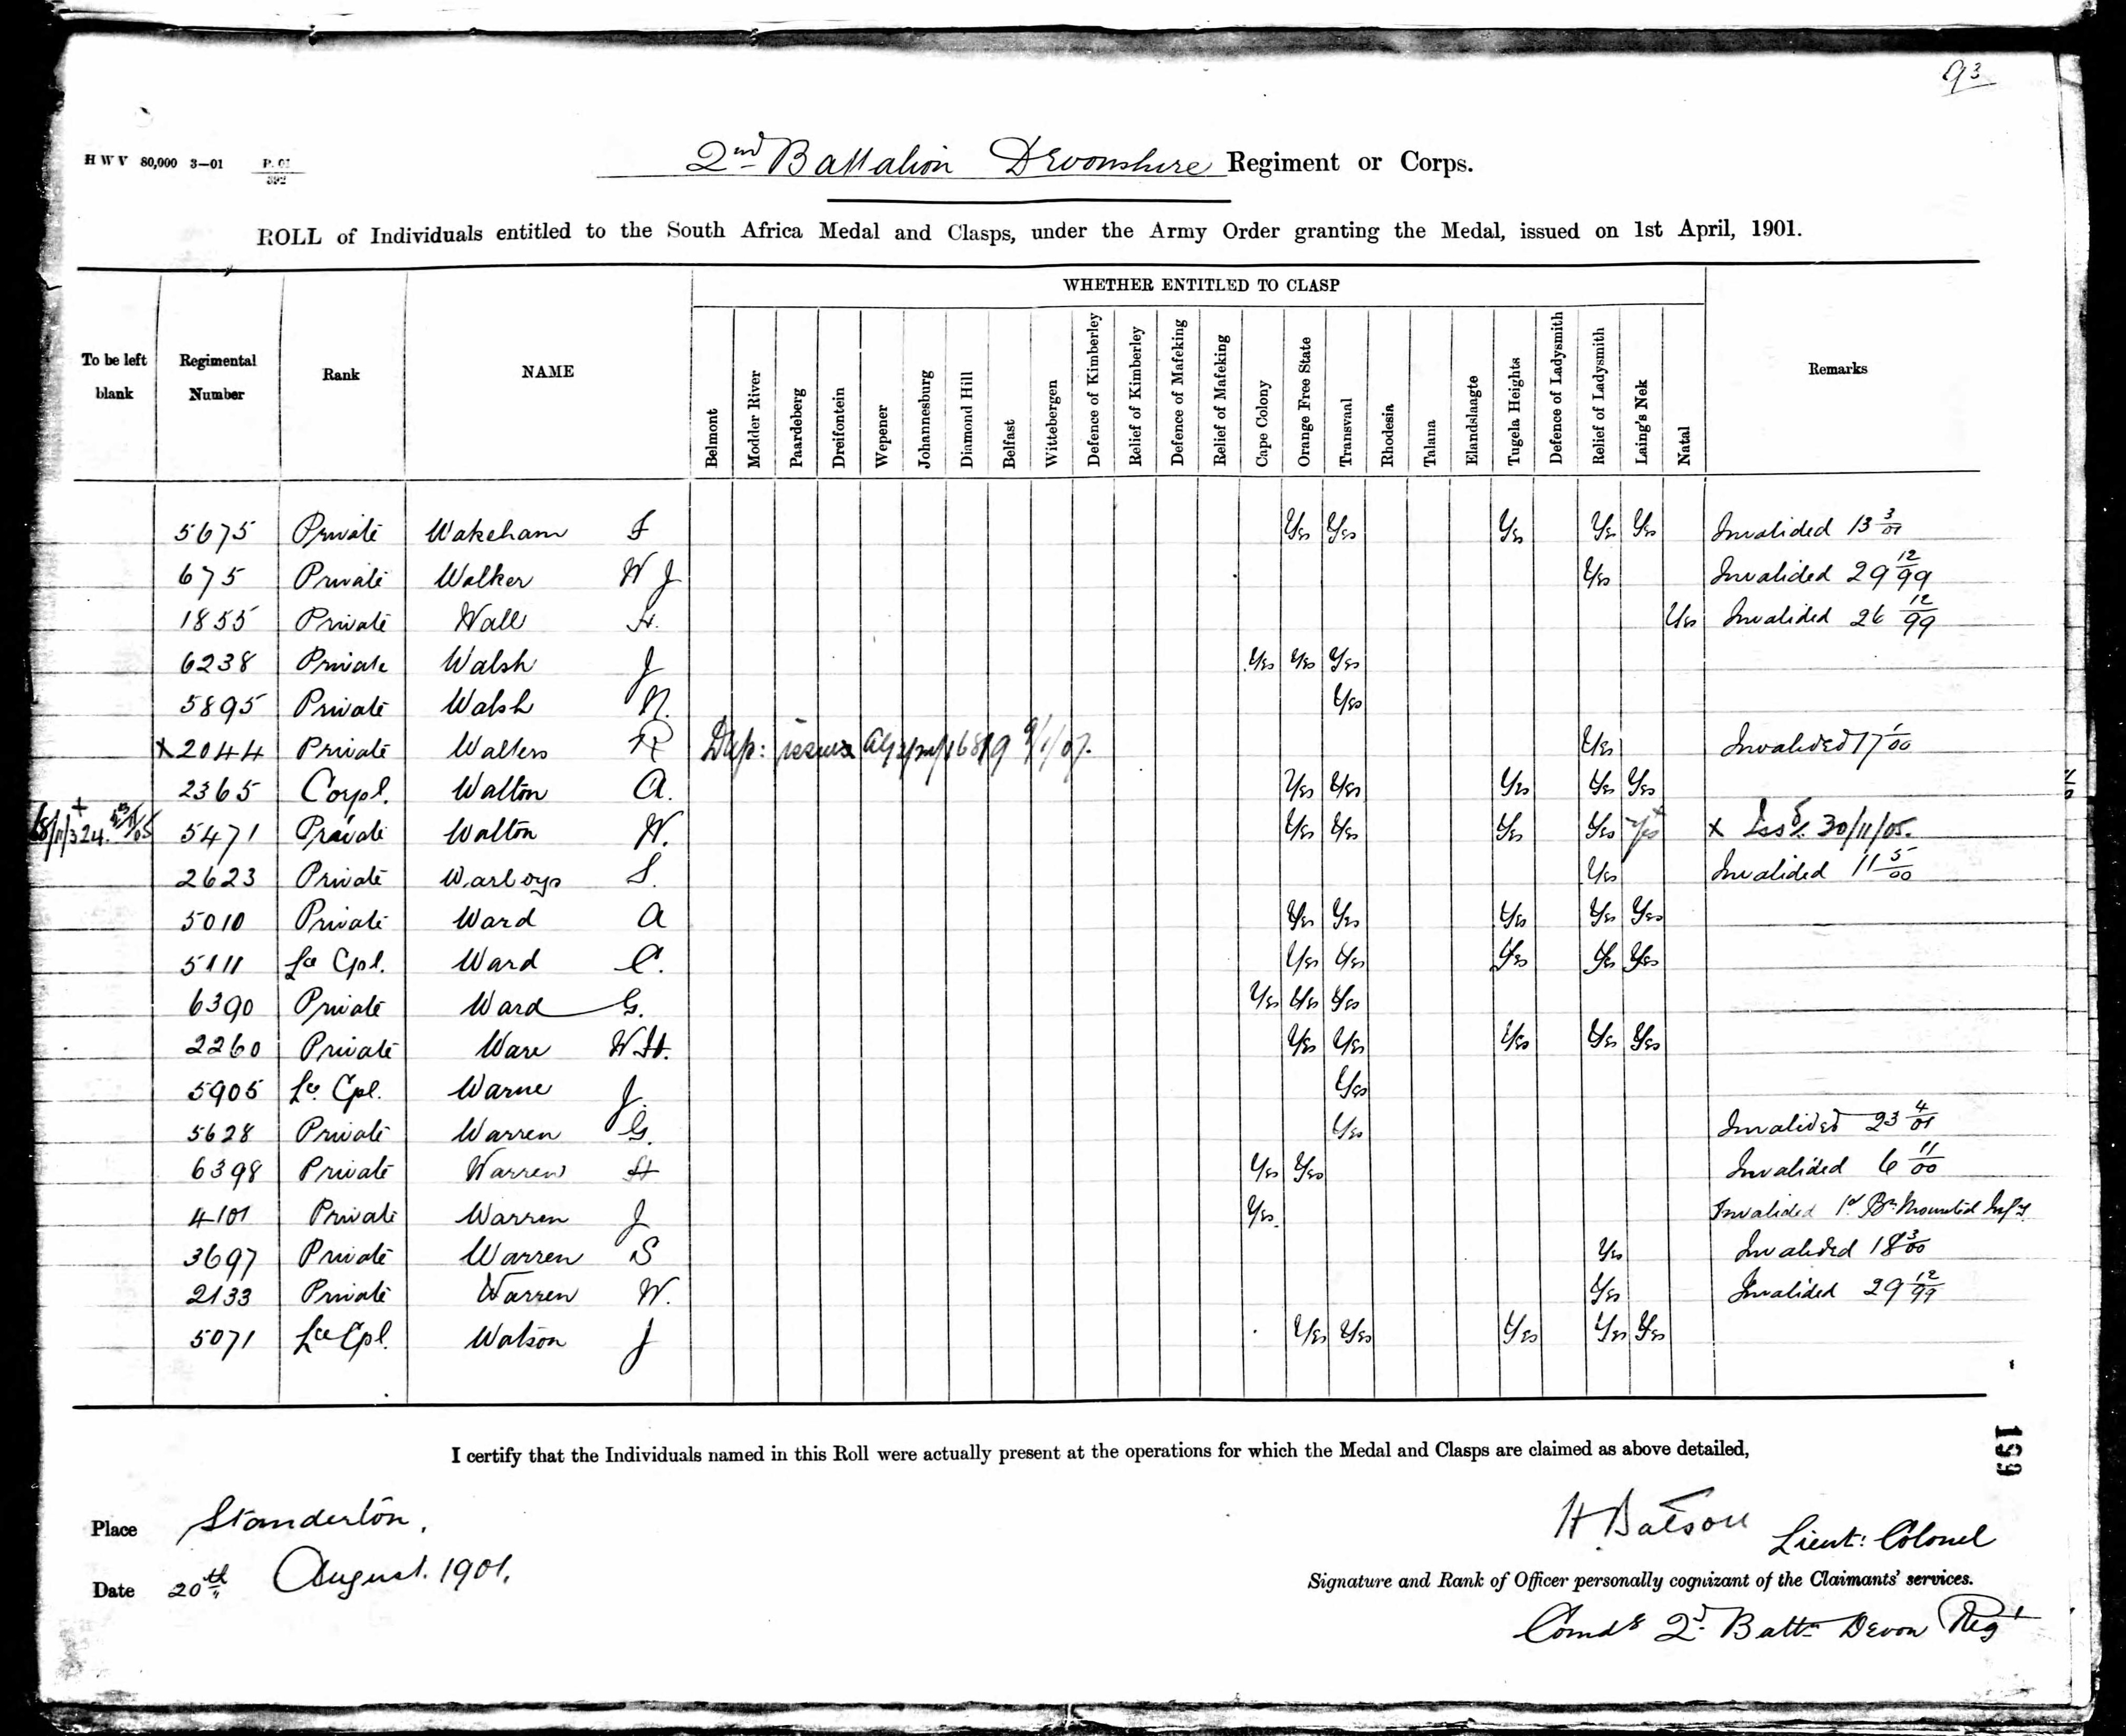 93
H W V 80,000 3—01 P. 01 392
2nd Battalion Devonshire Regiment or Corps.
ROLL of Individuals entitled to the South Africa Medal and Clasps, under the Army Order granting the Medal, issued on 1st April, 1901.
WHETHER ENTITLED TO CLASP
To be left blank Regimental Number Rank NAME Belmont Modder River Paardeberg Dreifontein Wepener Johannesburg Diamond Hill Belfast Wittebergen Defence of Kimberley Relief of Kimberley Defence of Mafeking Relief of Mafeking Cape Colony Orange Free State Transvaal Rhodesia Talana Elandslaagte Tugela Heights Defence of Ladysmith Relief of Ladysmith Laing's Nek Natal Remarks
5675 Private Wakeham F Yes Yes Yes Yes Yes Invalided 13 3/01
675 Private Walker W J Yes Invalided 29 12/99
1855 Private Wall H. Yes Invalided 26 12/99
6238 Private Walsh J Yes Yes Yes
5895 Private Walsh N. Yes
x 2044 Private Walters R Dup: issue 9/1/07. Yes Invalided 17 1/00
2365 Corpl. Walton A. Yes Yes Yes Yes Yes
5471 Private Walton W. Yes Yes Yes Yes Yes x x Issd 30/11/05.
2623 Private Warboys S. Yes Invalided 11 5/00
5010 Private Ward A Yes Yes Yes Yes Yes
5111 Lce Cpl. Ward C. Yes Yes Yes Yes Yes
6390 Private Ward G. Yes Yes Yes
2260 Private Ware W.H. Yes Yes Yes Yes Yes
5905 Lce Cpl. Warne J. Yes
5628 Private Warren G. Yes Invalided 23 4/01
6398 Private Warren H Yes Yes Invalided 6 11/00
4101 Private Warren J Yes. Invalided 1st Bn. Mounted Infy.
3697 Private Warren S Yes Invalided 18 3/00
2133 Private Warren W. Yes Invalided 29 12/99
5071 Lce Cpl. Watson J Yes Yes Yes Yes Yes
199
I certify that the Individuals named in this Roll were actually present at the operations for which the Medal and Clasps are claimed as above detailed,
Place Standerton.
H Batson Lieut: Colonel
Date 20th August. 1901.
Signature and Rank of Officer personally cognizant of the Claimants' services.
Comdg 2d Battn Devon Regt